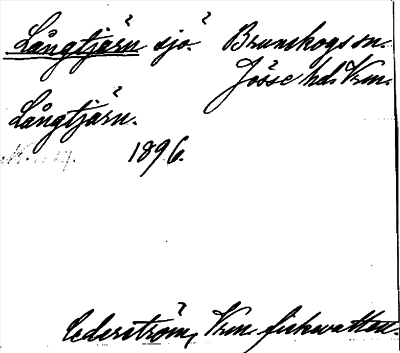 Långtjärn sjö. Brunskogs sn.
Jösse hd. Vrm.
Långtjärn.
1896.
Cederström, Vrm fiskvatten.